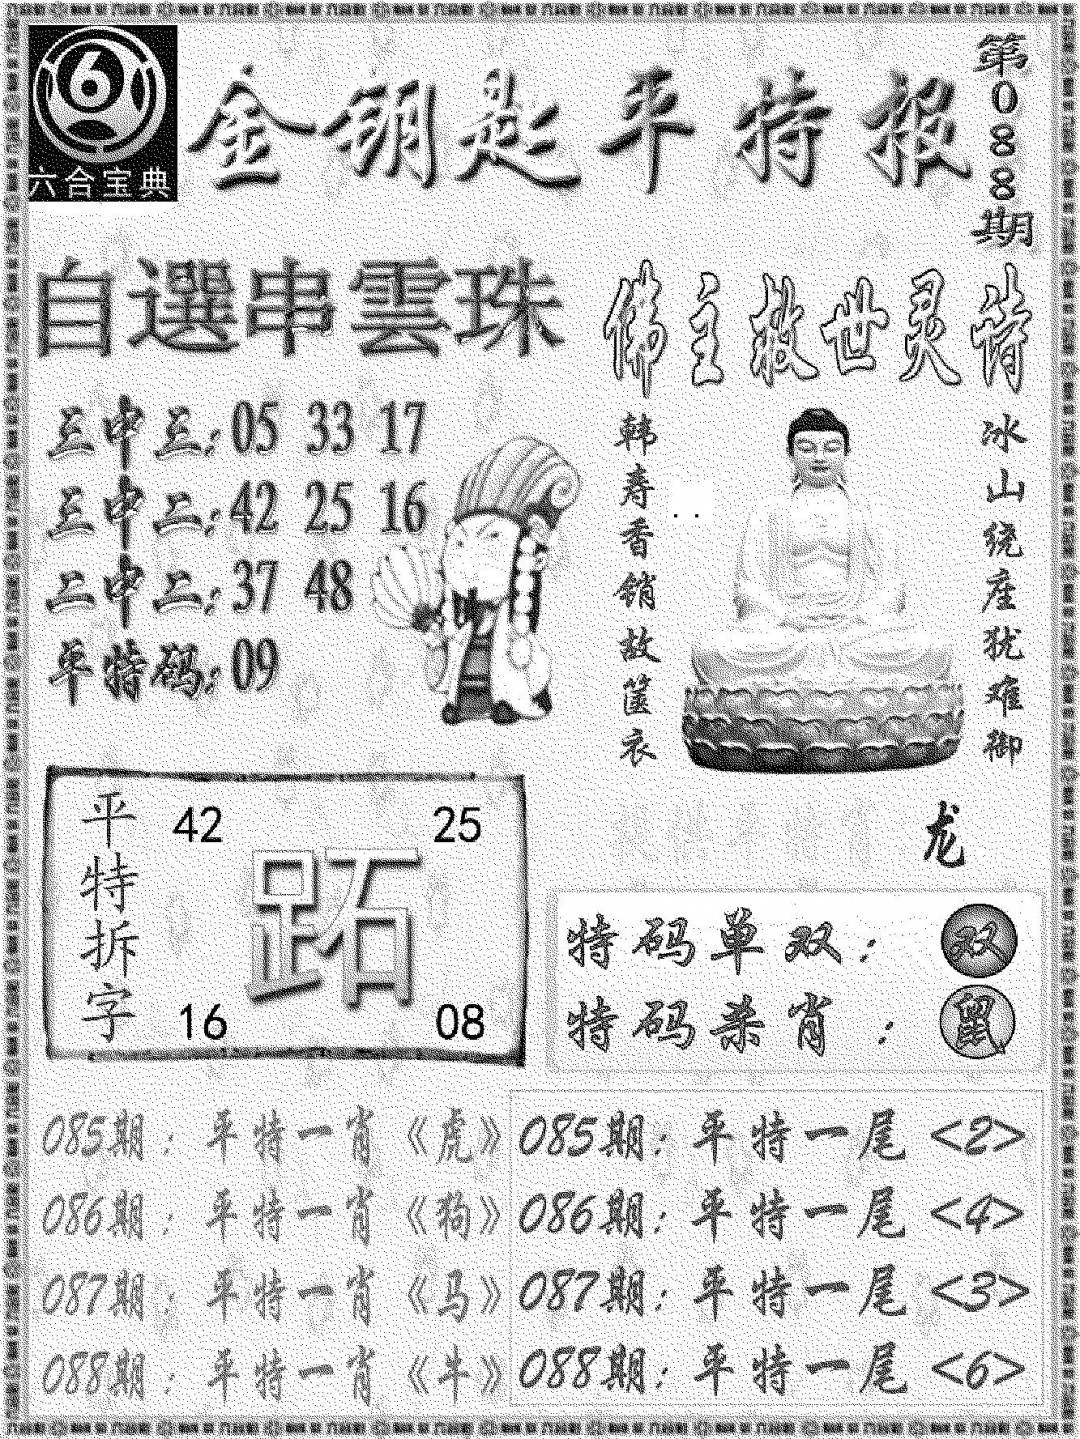 6
六合宝典
金钥匙平特报
第088期
自選串雲珠
三中三:05 33 17
三中二:42 25 16
二中二:37 48
平特码:09
佛主救世灵诗
冰山绕座犹难御
韩寿香销故箧衣
龙
平特拆字
42 25
跖
16 08
特码单双: 双
特码杀肖: 鼠
085期:平特一肖《虎》
086期:平特一肖《狗》
087期:平特一肖《马》
088期:平特一肖《牛》
085期:平特一尾<2>
086期:平特一尾<4>
087期:平特一尾<3>
088期:平特一尾<6>